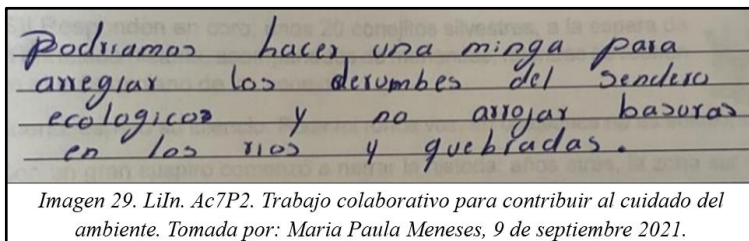 Podriamos hacer una minga para
arreglar los derumbes del sendero
ecologicos y no arrojar basuras
en los rios y quebradas.
Imagen 29. LiIn. Ac7P2. Trabajo colaborativo para contribuir al cuidado del
ambiente. Tomada por: Maria Paula Meneses, 9 de septiembre 2021.